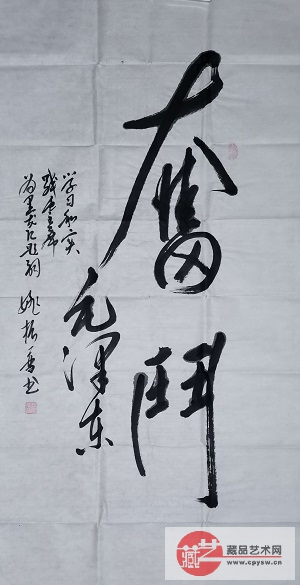 奮鬥
毛泽东
学习和实
践毛主席
题词
姚振 书
藏品艺术网
www.cpysw.cn